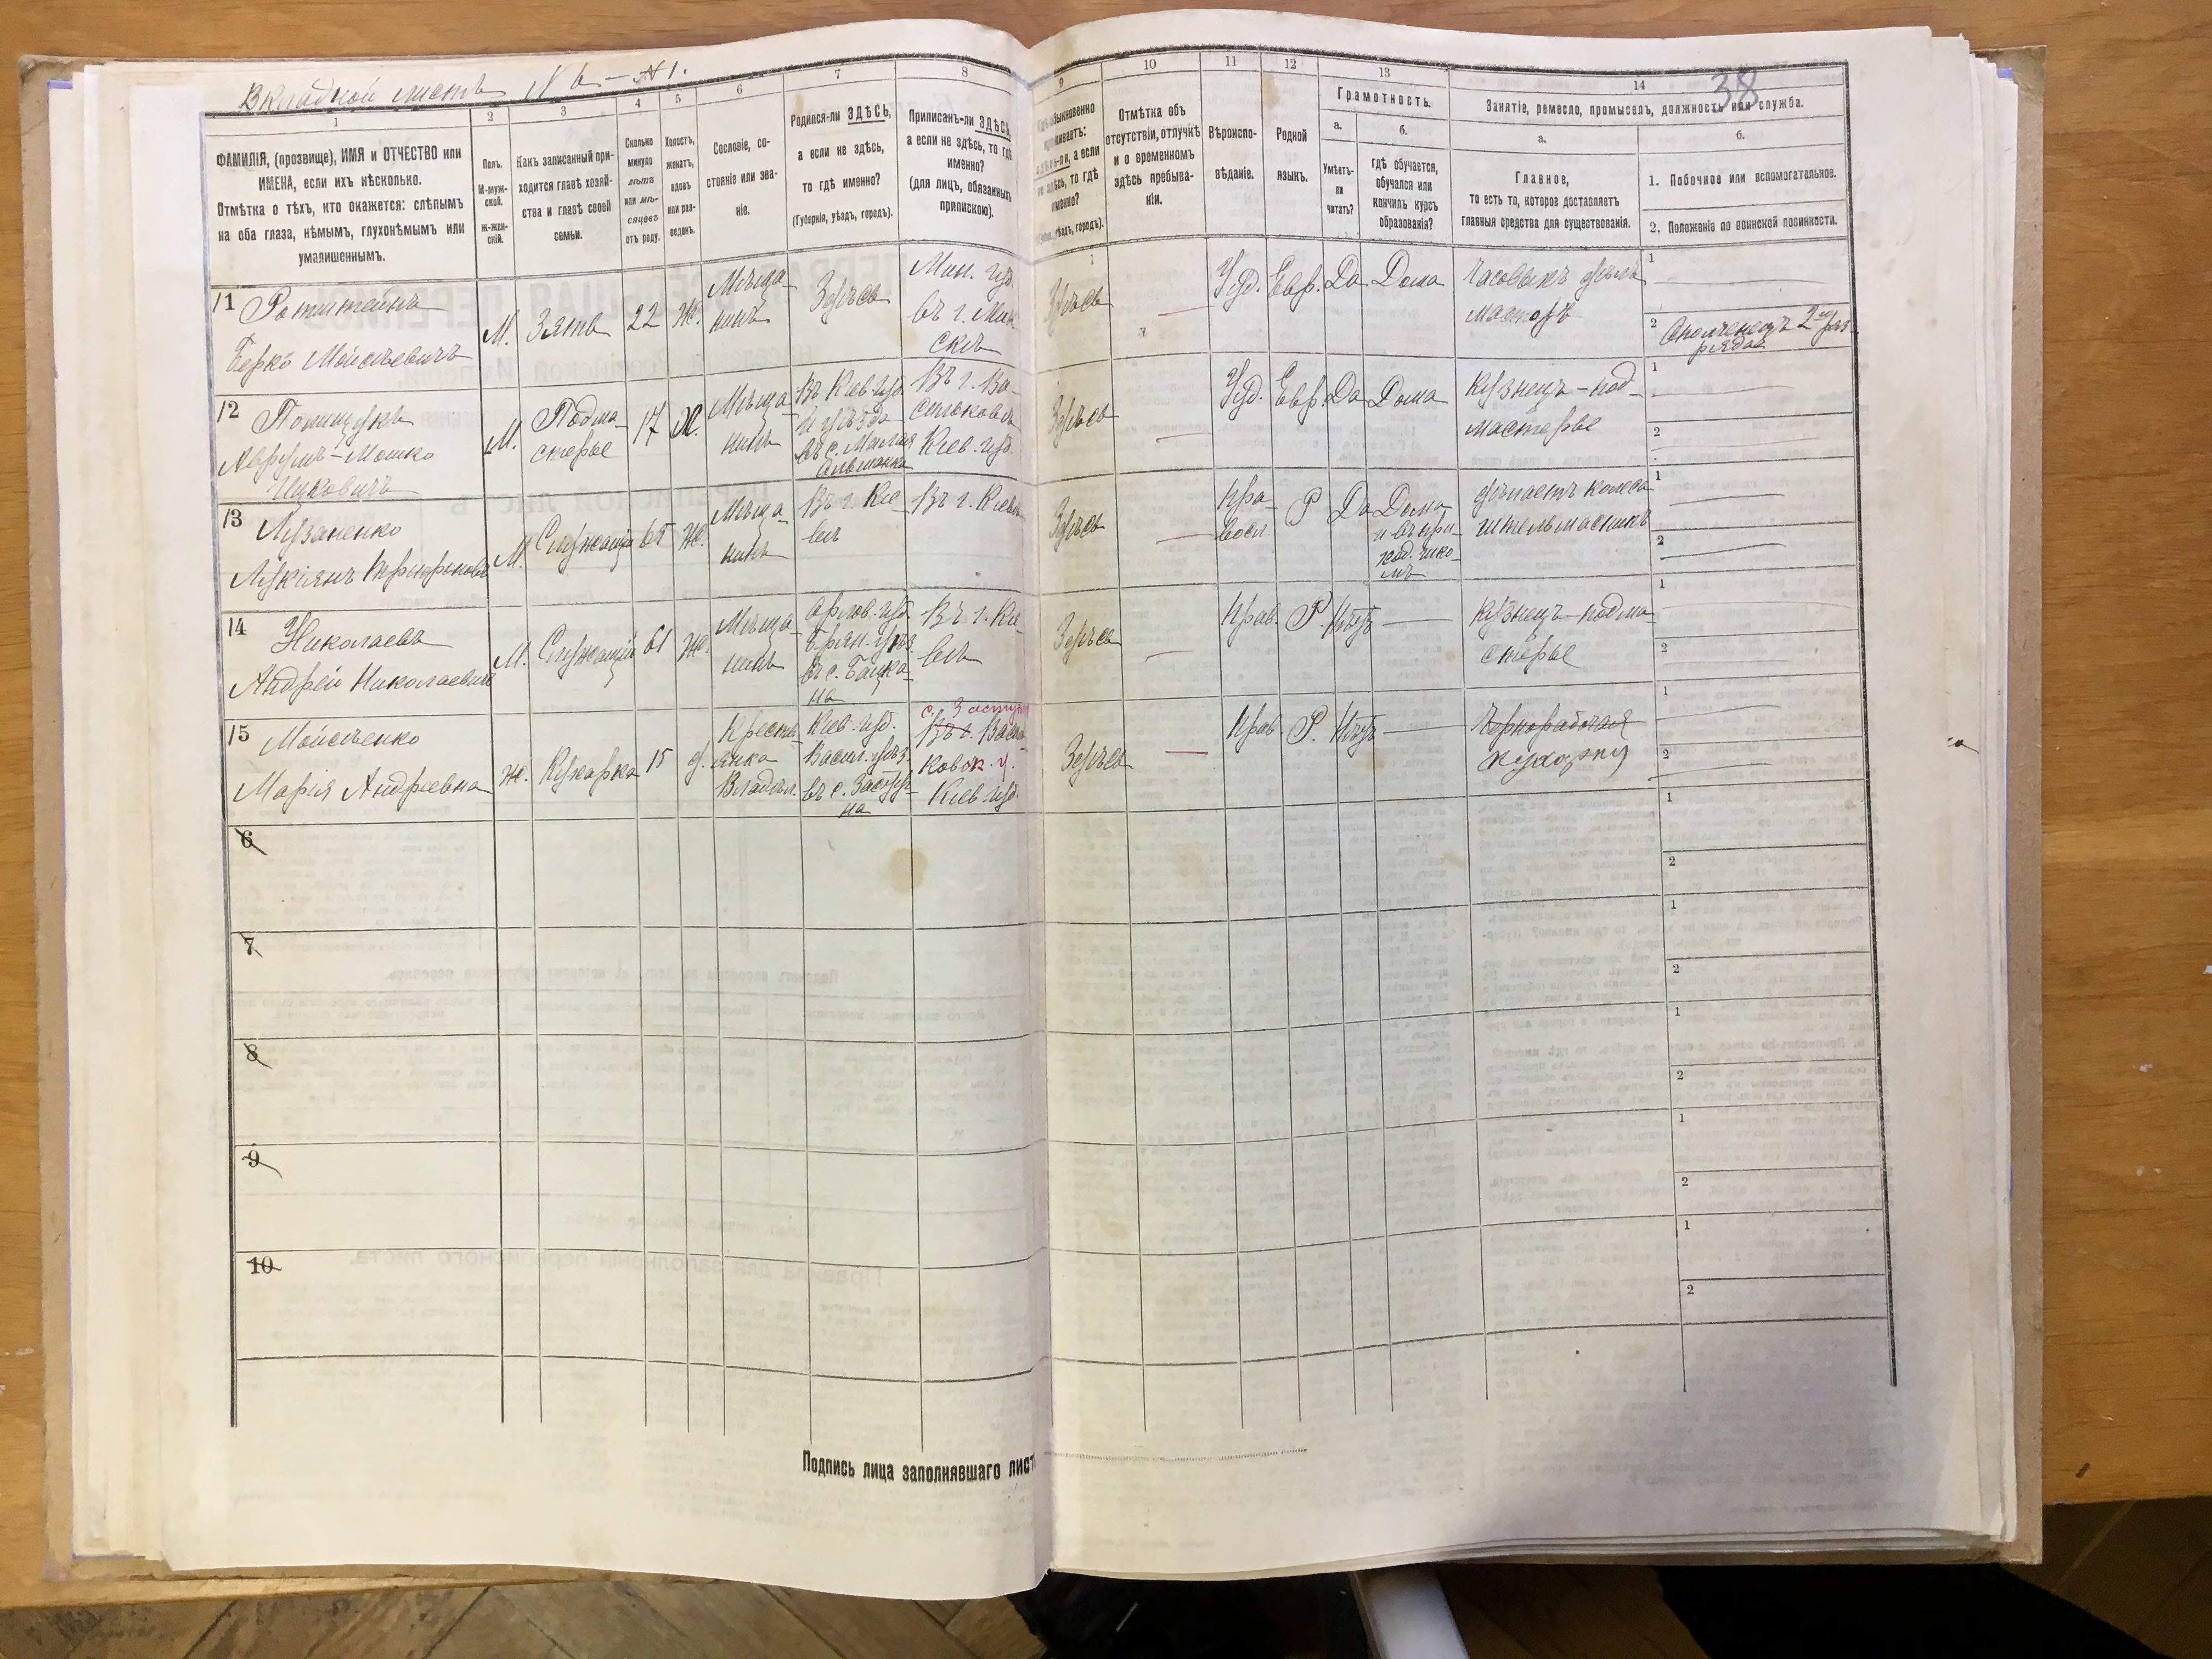 Вкладной листъ
38
1
2
3
4
5
6
7
8
9
10
11
12
13
14
ФАМИЛІЯ, (прозвище), ИМЯ и ОТЧЕСТВО или
ИМЕНА, если ихъ нѣсколько.
Отмѣтка о тѣхъ, кто окажется: слѣпымъ
на оба глаза, нѣмымъ, глухонѣмымъ или
умалишеннымъ.
Полъ.
М-муж-
ской.
Ж-жен-
скій.
Какъ записанный при-
ходится главѣ хозяй-
ства и главѣ своей
семьи.
Сколько
минуло
лѣтъ
или мѣ-
сяцевъ
отъ роду.
Холостъ,
женатъ,
вдовъ
или раз-
веденъ.
Сословіе, со-
стояніе или зва-
ніе.
Родился-ли ЗДѢСЬ,
а если не здѣсь,
то гдѣ именно?
(Губернія, уѣздъ, городъ).
Приписанъ-ли ЗДѢСЬ,
а если не здѣсь, то гдѣ
именно?
(для лицъ, обязанныхъ
припискою).
Отмѣтка объ
отсутствіи, отлучкѣ
и о временномъ
здѣсь пребыва-
ніи.
Вѣроиспо-
вѣданіе.
Родной
языкъ.
Грамотность.
а.
б.
Умѣетъ-
ли
читать?
гдѣ обучается,
обучался или
кончилъ курсъ
образованія?
Занятіе, ремесло, промыселъ, должность или служба.
а.
б.
Главное,
то есть то, которое доставляетъ
главныя средства для существованія.
1. Побочное или вспомогательное.
2. Положеніе по воинской повинности.
11 Ротштейнъ
Берко Мойсѣевичъ
М. Зять 22 Ж.
Мѣща-
нинъ
Здѣсь
Мин. губ.
въ г. Мин
скѣ
Здѣсь
Іуд. Евр. Да Дома
Часовыхъ дѣлъ
мастеръ
1
2 Ополченецъ 2го раз-
ряда
12 Полищукъ
Аврумъ-Мошко
Ицковичъ
М. Подма-
стерье
17 Х.
Мѣща-
нинъ
Въ Кіев. губ.
и уѣзда
въ с. Малая
Ольшанка
Въ г. Ва-
сильковѣ
Кіев. губ.
Здѣсь
Іуд. Евр. Да Дома
Кузнецъ-под-
мастерье
1
2
13 Лузаненко
М. Служащій 65 Ж.
Мѣща-
нинъ
Въ г. Кіе-
вѣ
Въ г. Кіевѣ
Здѣсь
Пра-
восл.
Р Да Дома
и въ при-
ход. шко-
лѣ
дѣлаетъ колеса
1
2
14 Николаевъ
Андрей Николаевичъ
М. Служащій 61 Ж.
Мѣща-
нинъ
Орлов. губ.
Брян. уѣз.
въ с.
Въ г. Кіе-
вѣ
Здѣсь
Прав. Р. Нѣтъ
Кузнецъ-подма-
стерье
1
2
15 Мойсѣенко
Марія Андреевна
Ж. Кухарка 15 д.
Кресть-
янка
Владѣл.
Кіев. губ.
Васил. уѣз.
въ с. Застуг-
на
с. Застугн
Въ г. Василь
ковск. у.
Кіев. губ.
Здѣсь
Прав. Р. Нѣтъ
Чернорабочая
1
2
6
1
2
7
1
2
8
1
2
9
1
2
10
1
2
Подпись лица заполнявшаго листъ